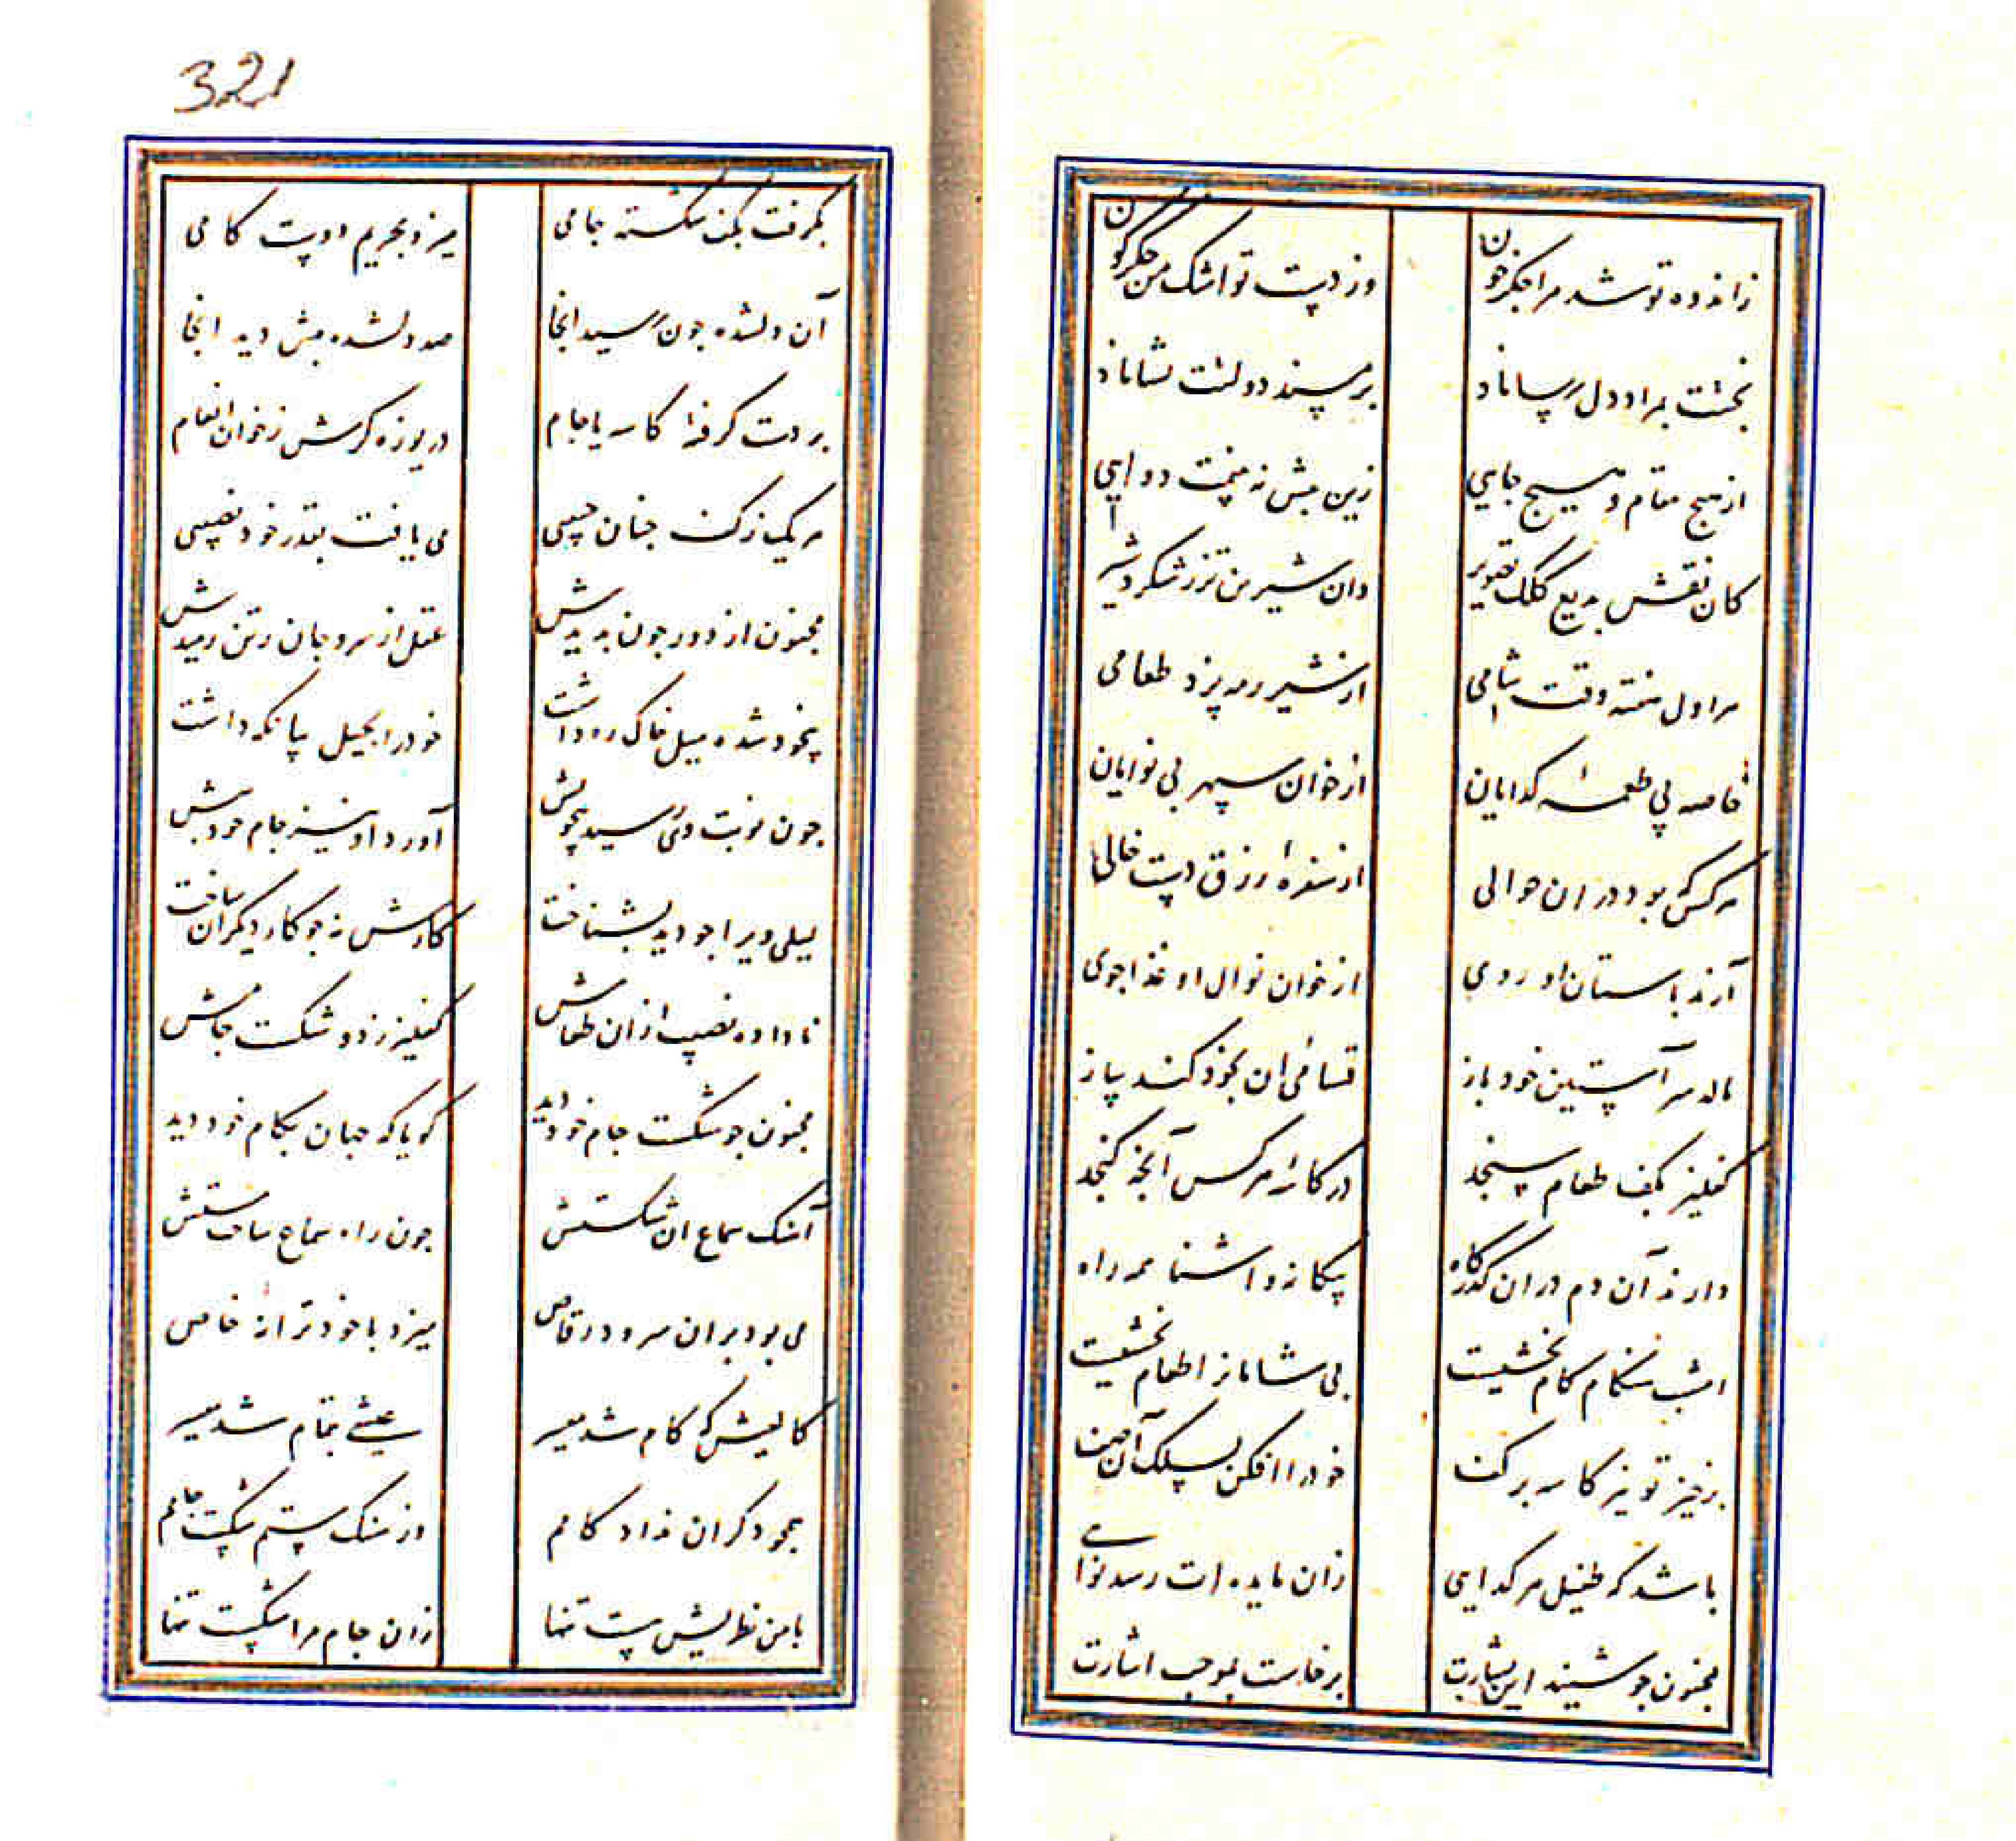 ز اندوه تو شد مرا جگر خون
وز دست تو اشک من جگرگون
بختت بمراد دل رساناد
بر مسند دولتت نشاناد
از هیچ مقام و هیچ جایی
زین پیش نه منحت دوایی
کان نقش بدیع کلک تقدیر
وان شیرین تر ز شکر و شیر
هر اول هفته وقت شامی
از شیر رمه پزد طعامی
خاصه پی طعمه گدایان
از خوان سپهر بی نوایان
هر کس که بود در ان حوالی
از سفره رزق دست خالی
آرند بآستان او روی
از خوان نوال او غذا جوی
مالد سر آستین خود باز
قسامی ان بخود کند ساز
کفلیز بکف طعام سنجد
در کاسه هر کس آنچه گنجد
دارند آن دم در ان گذرگاه
بیگانه و اشنا همه راه
امشب هنگام کام بخشیست
بی شامان را طعام بخشیست
برخیز تو نیز کاسه بر کف
خود را افکن بسلک آن صف
باشد که طفیل هر گدایی
زان مایده ات رسد نوایی
مجنون چو شنید این بشارت
برخاست بموجب اشارت
بگرفت بکف شکسته جامی
میزد بحریم دوست گامی
آن دلشده چون رسید انجا
صد دلشده بیش دید انجا
بر دست گرفته کاسه یا جام
دریوزه گرش ز خوان انعام
هر یک ز کف چنان حبیبی
می یافت بقدر خود نصیبی
مجنون از دور چون بدیدش
عقل از سر و جان ز تن رمیدش
بیخود شده میل خاک ره داشت
خود را بحیل بپا نگه داشت
چون نوبت وی رسید بیخویش
آورد او نیز جام خود پیش
لیلی ویرا چو دید بشناخت
کارش نه چو کار دیگران ساخت
ناداده نصیب از ان طعامش
کفلیز زد و شکست جامش
مجنون چو شکست جام خود دید
گویا که جهان بکام خود دید
آهنگ سماع ان شکستش
چون راه سماع ساخت مستش
می بود بران سرود رقاص
میزد با خود ترانه خاص
کالعیش که کام شد میسر
عیشی بتمام شد میسر
همچو دگران نداد کامم
وز سنگ ستم شکست جامم
با من نظریش هست تنها
زان جام مرا شکست تنها
321